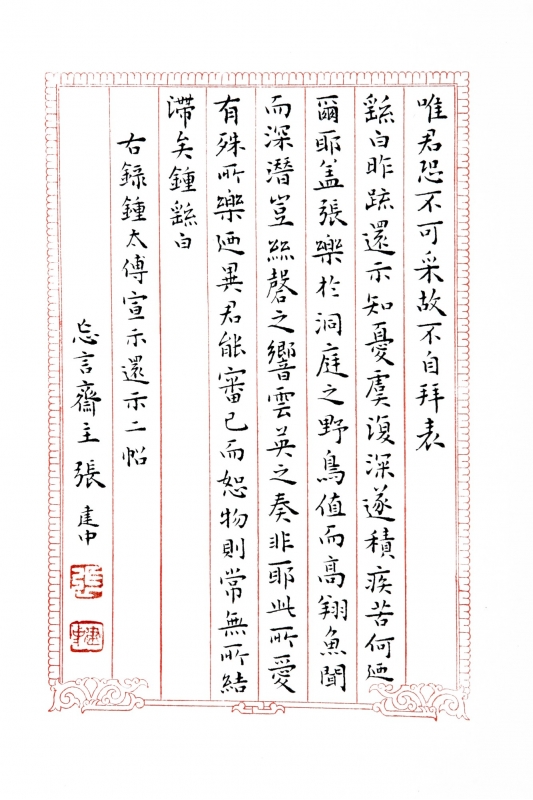 唯君恐不可采故不自拜表
繇白昨疏還示知憂虞復深遂積疾苦何迺
爾耶蓋張樂於洞庭之野鳥值而高翔魚聞
而深潛豈絲磬之響雲英之奏非耶此所愛
有殊所樂迺異君能審己而恕物則常無所結
滯矣鍾繇白
右錄鍾太傅宣示還示二帖
忘言齋主張建中
張
建中